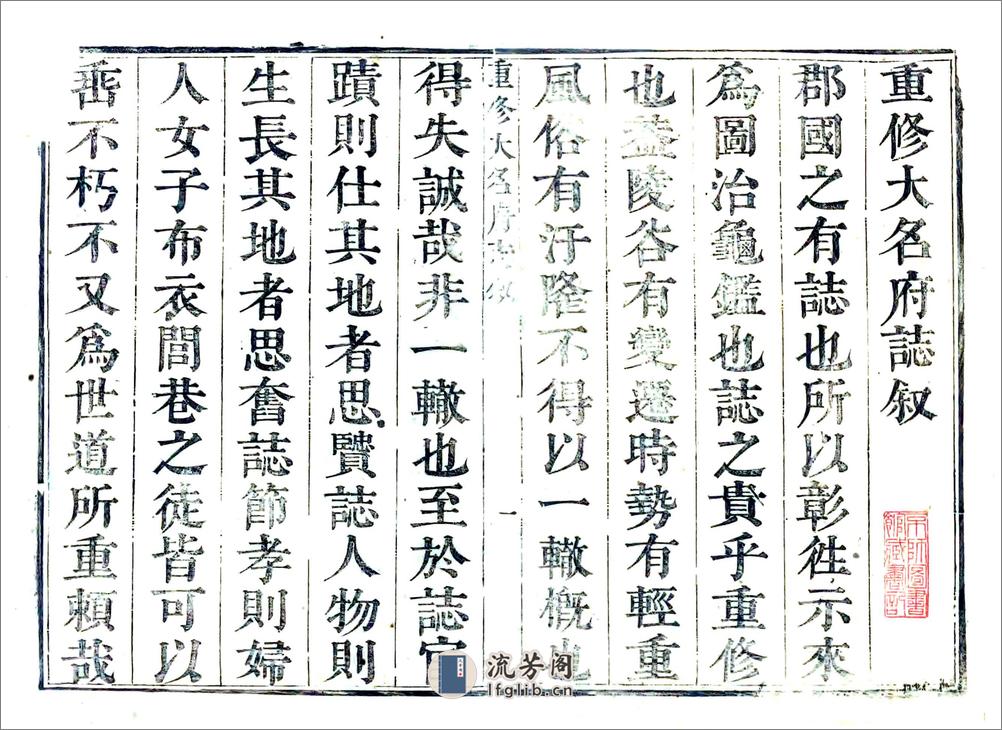 重修大名府誌叙
京師圖書
館藏書記
郡國之有誌也所以彰徃示來
爲圖治龜鑑也誌之貴乎重修
也葢陵谷有變遷時勢有輕重
風俗有汙隆不得以一轍概也
重修大名府志叙 一
得失誠哉非一轍也至於誌官
蹟則仕其地者思贒誌人物則
生長其地者思奮誌節孝則婦
人女子布衣閭巷之徒皆可以
垂不朽不又爲世道所重頼哉
流芳阁
lfglib.cn